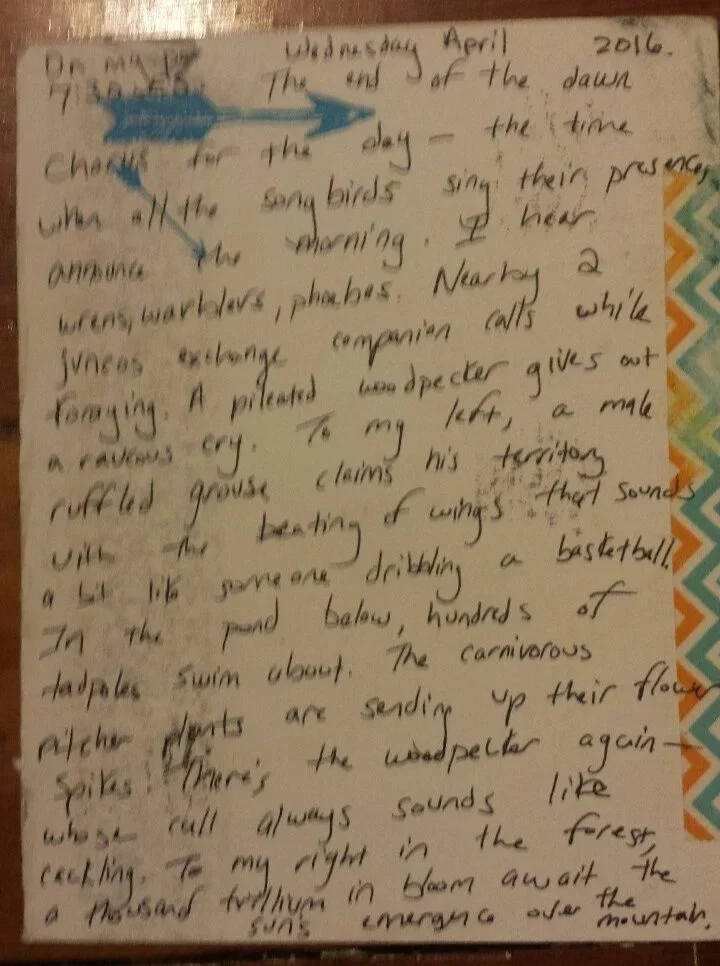 On my Wednesday April 2016.
7:30 The end of the dawn
chorus for the day — the time
when all the songbirds sing their presences,
announce the morning. I hear
wrens, warblers, phoebes. Nearby 2
juncos exchange companion calls while
foraging. A pileated woodpecker gives out
a raucous cry. To my left, a male
ruffled grouse claims his territory
with the beating of wings that sounds
a bit like someone dribbling a basketball.
In the pond below, hundreds of
tadpoles swim about. The carnivorous
pitcher plants are sending up their flower
spikes. There's the woodpecker again—
whose call always sounds like
cackling. To my right in the forest,
a thousand trillium in bloom await the
sun's emergence over the mountain.